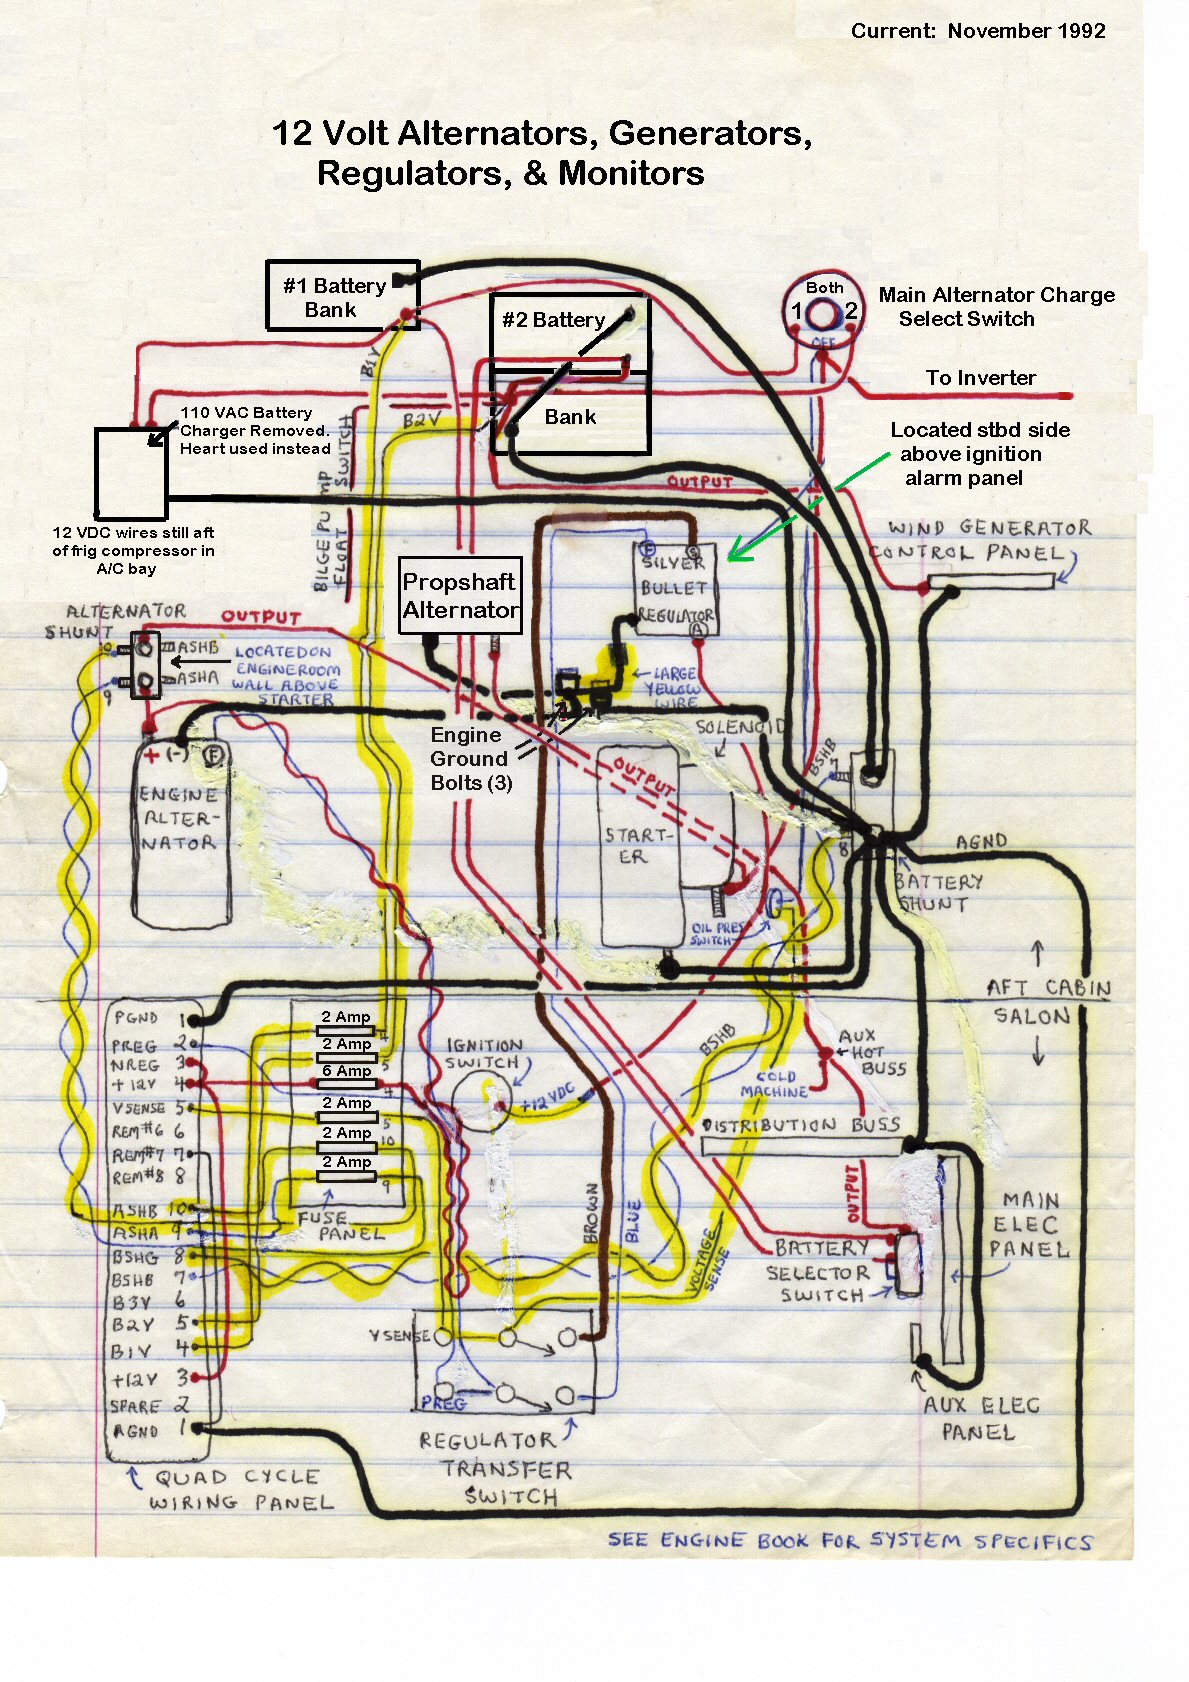 Current: November 1992
12 Volt Alternators, Generators,
Regulators, & Monitors
#1 Battery
Bank
#2 Battery
Bank
Both
1 2
OFF
Main Alternator Charge
Select Switch
To Inverter
B1V
B2V
110 VAC Battery
Charger Removed.
Heart used instead
12 VDC wires still aft
of frig compressor in
A/C bay
BILGE PUMP
FLOAT SWITCH
Located stbd side
above ignition
alarm panel
OUTPUT
WIND GENERATOR
CONTROL PANEL
Propshaft
Alternator
SILVER
BULLET
REGULATOR
F
A
LARGE
YELLOW
WIRE
ALTERNATOR
SHUNT
OUTPUT
10
ASHB
9
ASHA
LOCATED ON
ENGINEROOM
WALL ABOVE
STARTER
Engine
Ground
Bolts (3)
SOLENOID
+ (-) F
ENGINE
ALTER-
NATOR
OUTPUT
START-
ER
BSHB
7
8
BATTERY
SHUNT
AGND
OIL PRES
SWITCH
AFT CABIN
SALON
PGND 1
PREG 2
NREG 3
+12V 4
VSENSE 5
REM#6 6
REM#7 7
REM#8 8
ASHB 10
ASHA 9
BSHG 8
BSHB 7
B3V 6
B2V 5
B1V 4
+12V 3
SPARE 2
AGND 1
2 Amp 4
2 Amp 5
6 Amp 4
2 Amp 5
2 Amp 10
2 Amp 9
FUSE
PANEL
IGNITION
SWITCH
+12VDC
BSHB
AUX
HOT
BUSS
COLD
MACHINE
DISTRIBUTION BUSS
OUTPUT
BROWN
BLUE
VOLTAGE
SENSE
MAIN
ELEC
PANEL
BATTERY
SELECTOR
SWITCH
VSENSE
PREG
REGULATOR
TRANSFER
SWITCH
AUX ELEC
PANEL
QUAD CYCLE
WIRING PANEL
SEE ENGINE BOOK FOR SYSTEM SPECIFICS